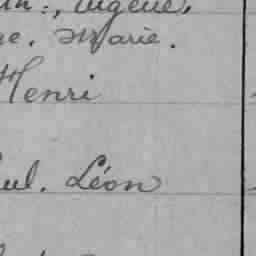 Eugène,
Marie.
Henri
Léon